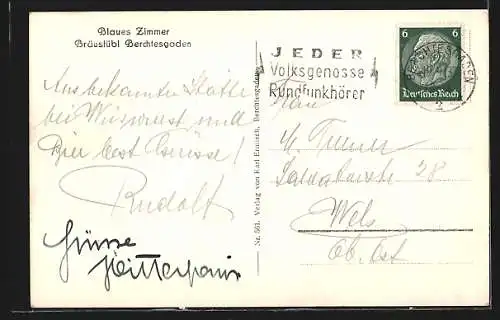 Blaues Zimmer
Bräustübl Berchtesgaden
JEDER
Volksgenosse
Rundfunkhörer
6 6
Deutsches Reich
BERCHTESGADEN
2
Aus bekannter Stätte
bei Weisswurst und
Bier best Grüsse!
Rudolf
Grüsse
Nr. 561. Verlag von Karl Ermisch, Berchtesgaden
Frau
M.
28
Wels
Ob. Ost